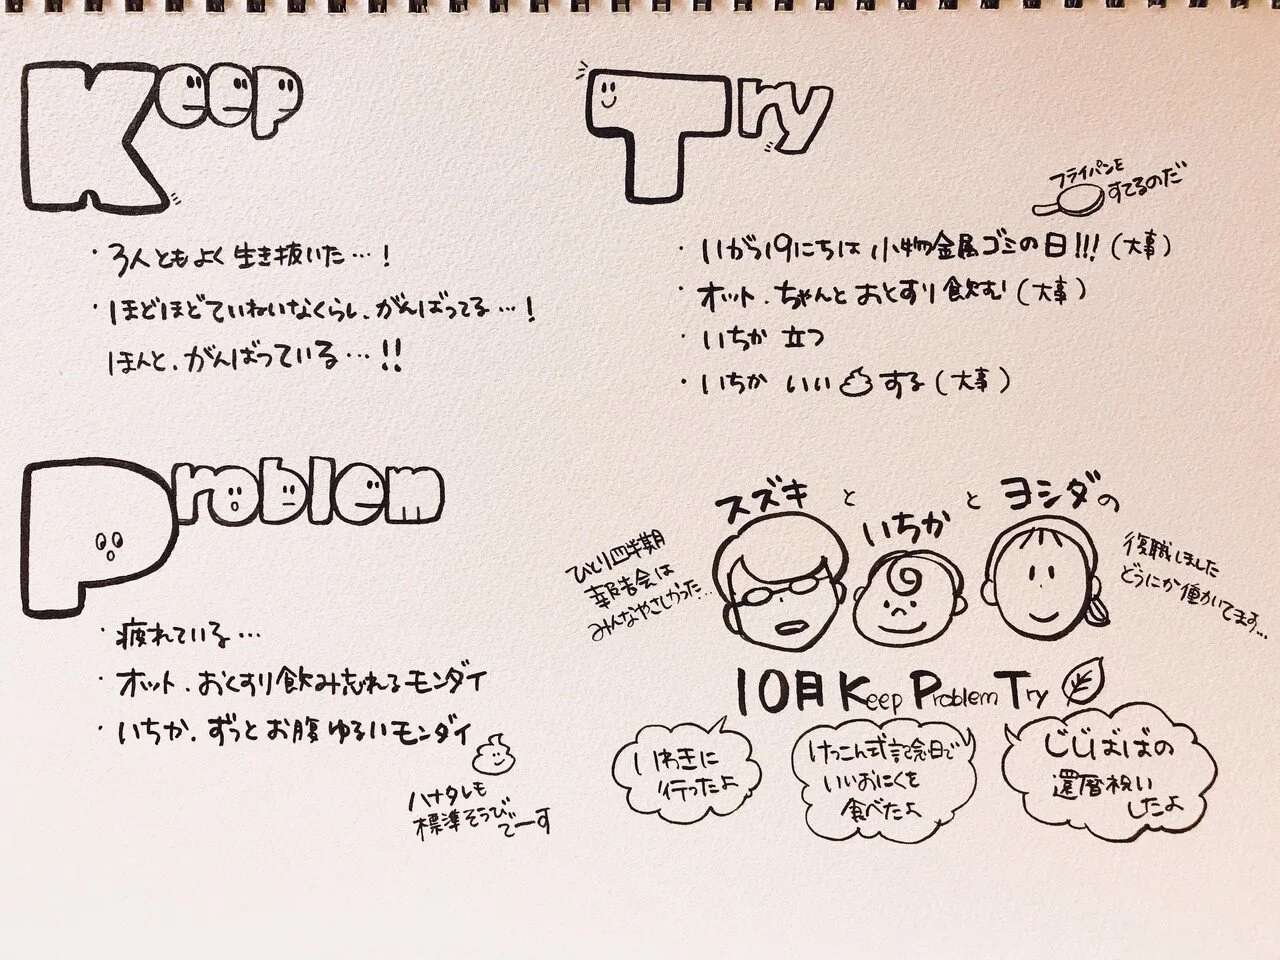 Keep
・3人ともよく生き抜いた…!
・ほどほどていねいなくらし、がんばってる…!
ほんと、がんばっている…!!
Try
フライパンを
すてるのだ
・11がつ19にちは 小物金属ゴミの日!!!(大事)
・オット、ちゃんとおくすり飲む(大事)
・いちか 立つ
・いちか いい する(大事)
Problem
・疲れている…
・オット、おくすり飲み忘れるモンダイ
・いちか、ずっとお腹ゆるいモンダイ
ハナタレも
標準そうび
でーす
スズキ と いちか と ヨシダの
ひとり四半期
報告会は
みんなやさしかった…
復職しました
どうにか働かいてます…
10月 Keep Problem Try
いわきに
行ったよ
けっこん式記念日で
いいおにくを
食べたよ
じじばばの
還暦祝い
したよ